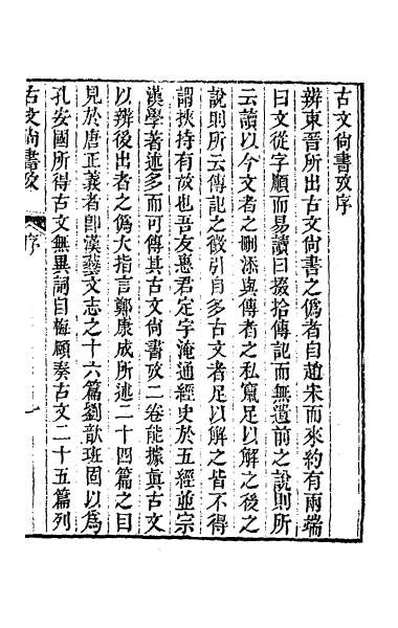 古文尙書攷序
辨東晉所出古文尙書之僞者自趙宋而來約有兩端
曰文從字順而易讀曰掇拾傳記而無遺前之說則所
云讀以今文者之刪添與傳者之私竄足以解之後之
說則所云傳記之徵引自多古文者足以解之皆不得
謂挾持有故也吾友惠君定字淹通經史於五經並宗
漢學著述多而可傳其古文尙書攷二卷能據眞古文
以辨後出者之僞大指言鄭康成所述二十四篇之目
見於唐正義者卽漢藝文志之十六篇劉歆班固以爲
孔安國所得古文無異詞自梅頤奏古文二十五篇列
古文尙書攷 序